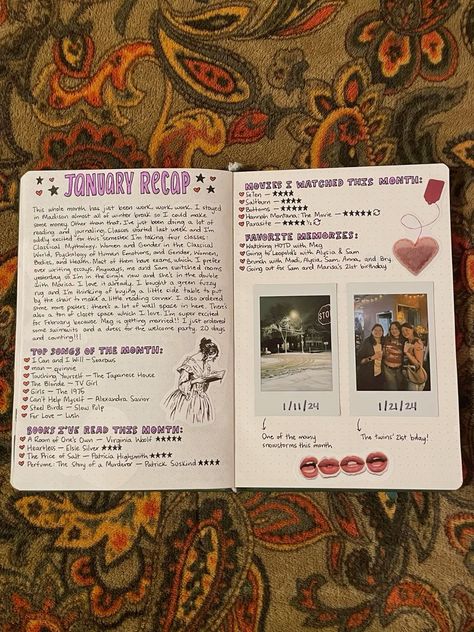 JANUARY RECAP
This whole month has just been work, work, work. I stayed
in Madison almost all of winter break so I could make
some money. Other than that, I've just been doing a lot of
reading and journaling. Classes started last week and I'm
oddly excited for this semester. I'm taking four classes:
Classical Mythology, Women and Gender in the Classical
World, Psychology of Human Emotions, and Gender, Women,
Bodies, and Health. Most of them have exams, which I prefer
over writing essays. Anyways, me and Sam switched rooms
yesterday so I'm in the single now and she's in the double
with Marisa. I love it already. I bought a green fuzzy
rug and I'm thinking of buying a little side table to put
by the chair to make a little reading corner. I also ordered
some more posters; there's a lot of wall space in here. There's
also a ton of closet space which I love. I'm super excited
for February because Meg is getting married!! I just ordered
some swimsuits and a dress for the welcome party. 20 days
and counting!!!
TOP SONGS OF THE MONTH:
I Can and I Will - Searows
man - quinnie
Touching Yourself - The Japanese House
The Blonde - TV Girl
Girls - The 1975
Can't Help Myself - Alexandra Savior
Steel Birds - Slow Pulp
For Love - Lush
BOOKS I'VE READ THIS MONTH:
A Room of One's Own - Virginia Woolf ★★★★★
Heartless - Elsie Silver ★★★★
The Price of Salt - Patricia Highsmith ★★★★
Perfume: The Story of a Murderer - Patrick Suskind ★★★★
MOVIES I WATCHED THIS MONTH:
Saltburn - ★★★★
Bottoms - ★★★★
Hannah Montana: The Movie - ★★★★★
Parasite - ★★★★½
FAVORITE MEMORIES:
Watching HOTD with Meg
Going to Leopold's with Alycia & Sam
Brunch with Madi, Alycia, Sam, Anna, and Bry
Going out for Sam and Marisa's 21st birthday
STOP
1/11/24
1/21/24
One of the many
snowstorms this month
The twins' 21st bday!